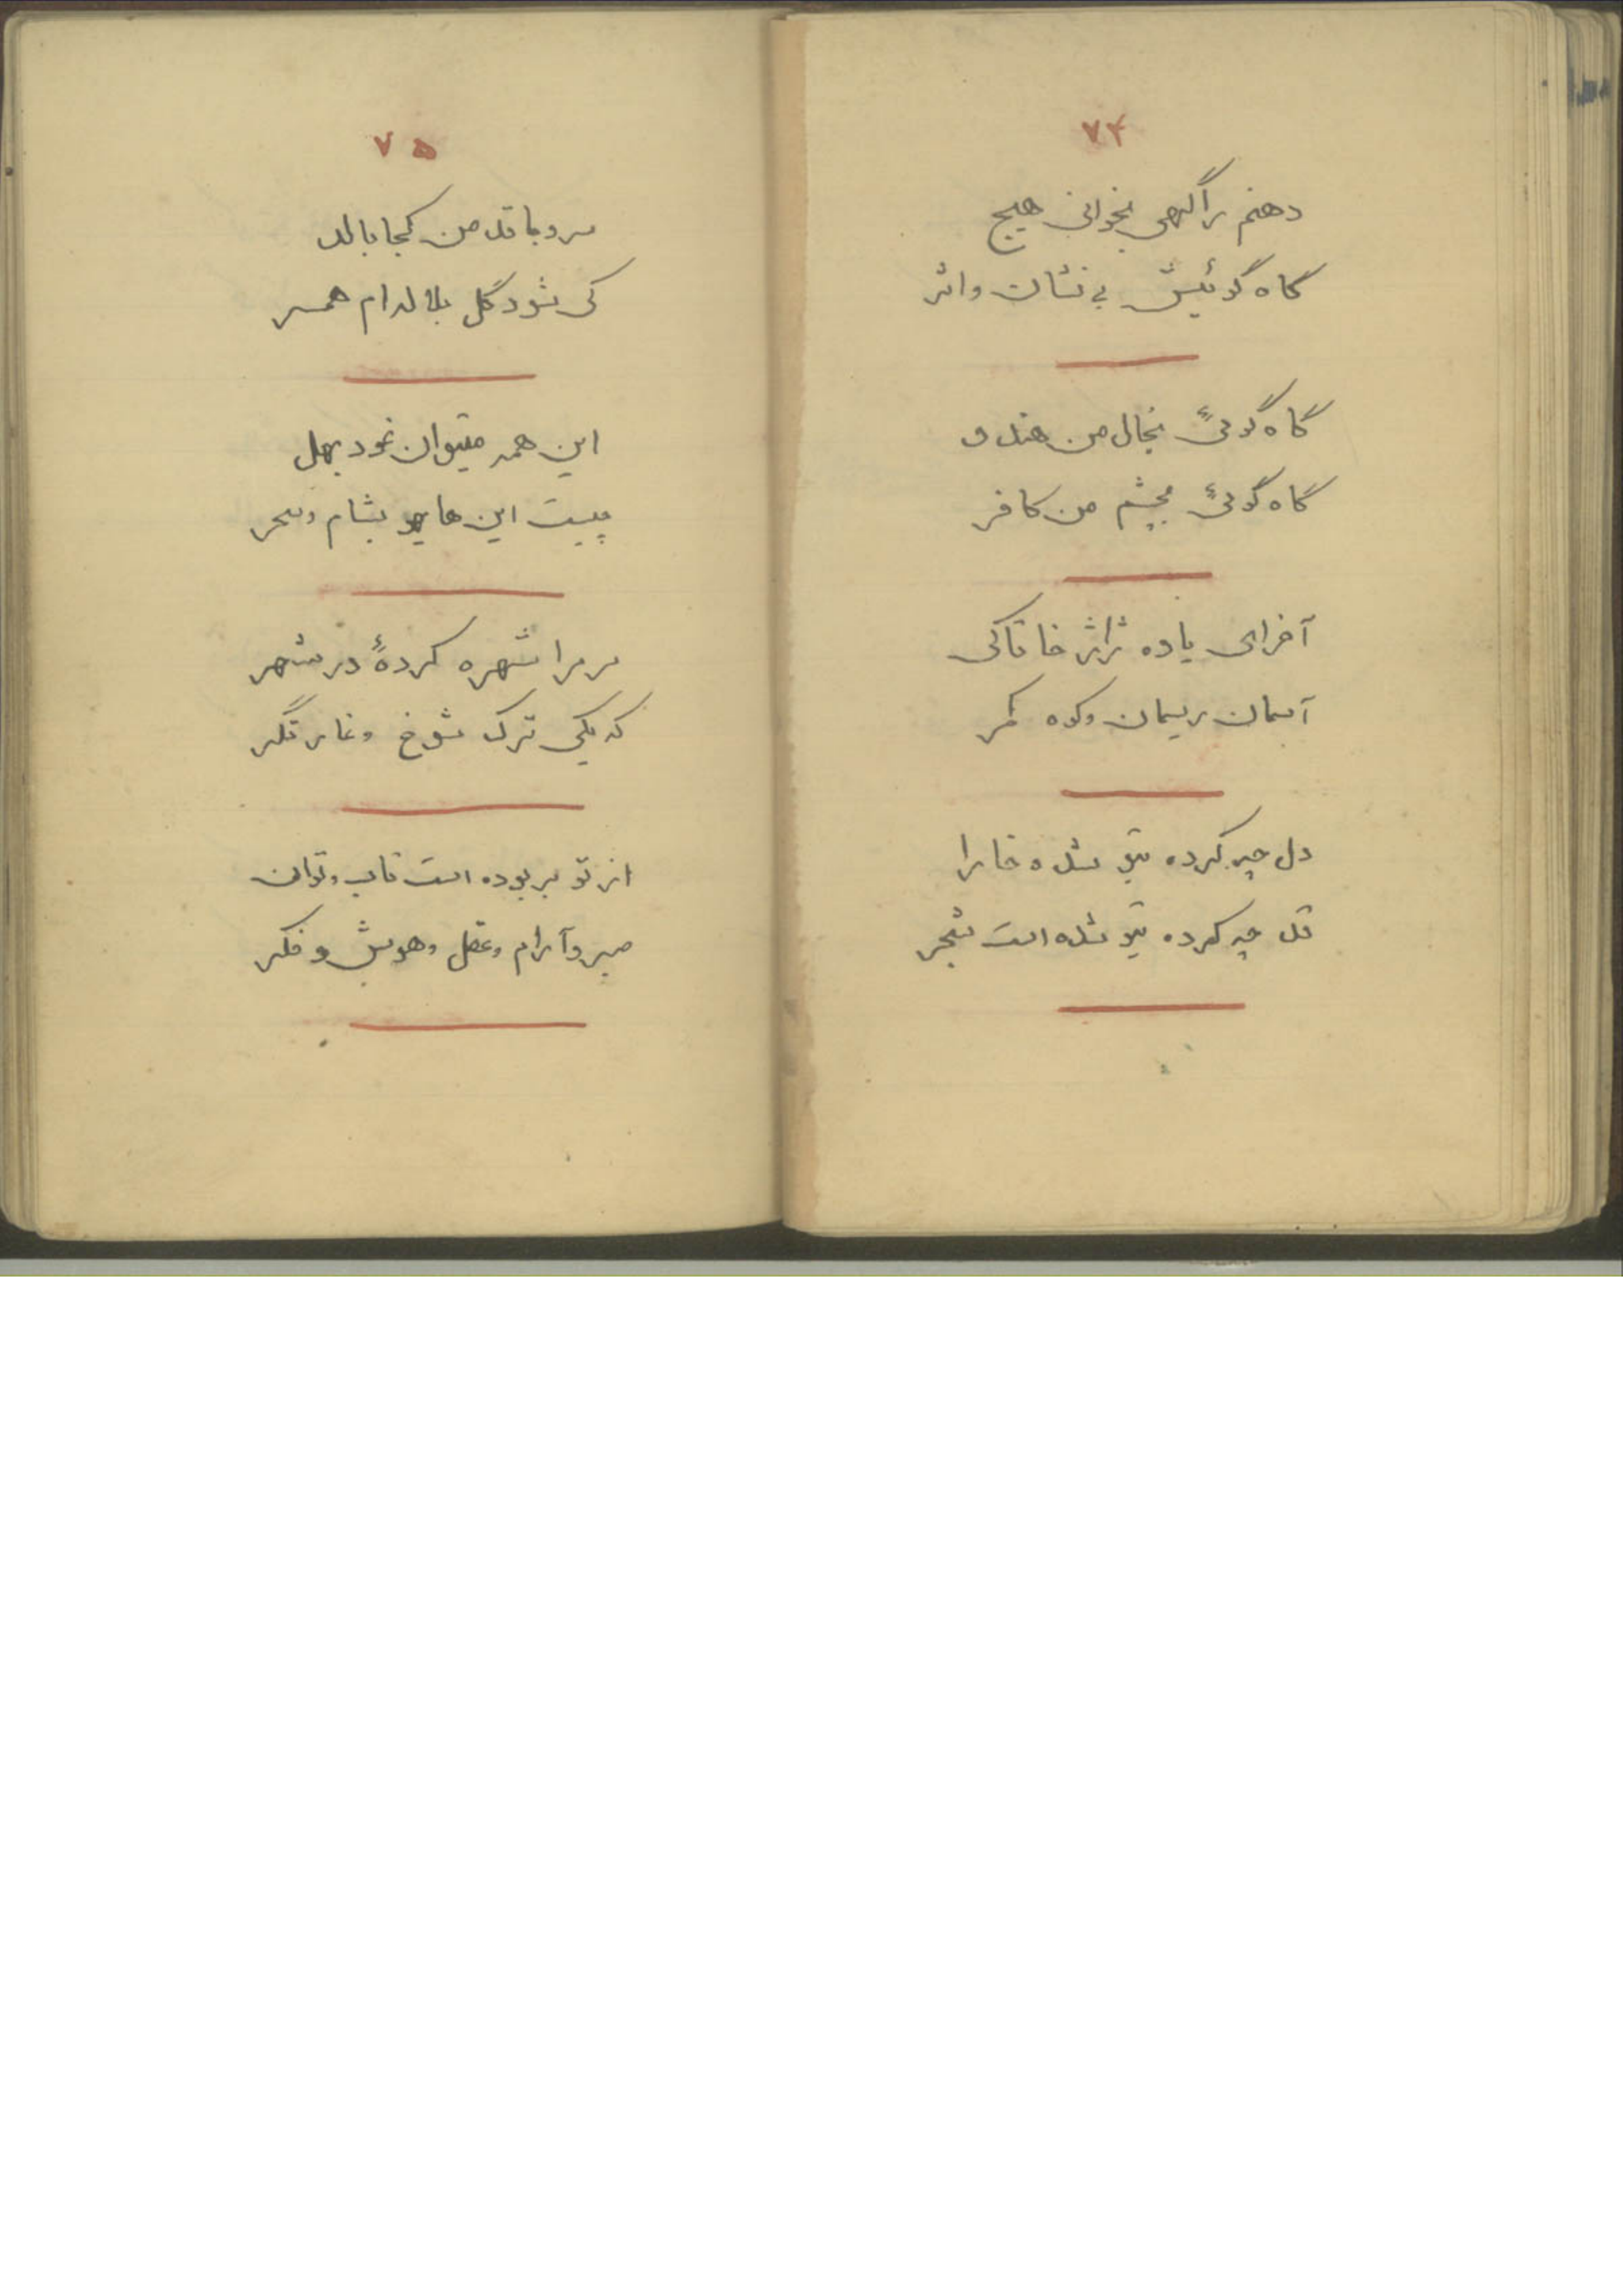 ۷۴
دهنم را گهی بخوانی هیچ
گاه گوئیش بی نشان و اثر
گاه گوئی بخال من هندو
گاه گوئی بچشم من کافر
آخر ای یاوه ژاژ خا تا کی
آسمان ریسمان و کوه کمر
دل چه کرده بتو شده خارا
قد چه کرده بتو شده است شجر
۷۵
سرو با قد من کجا بالد
کی شود گل بلاله ام همسر
این همه میتوان نمود بهل
چیست این های هو بشام و سحر
مر مرا شهره کردهٔ در شهر
که یکی ترک شوخ و غارتگر
از تو بربوده است تاب و توان
صبر و آرام و عقل و هوش و فکر